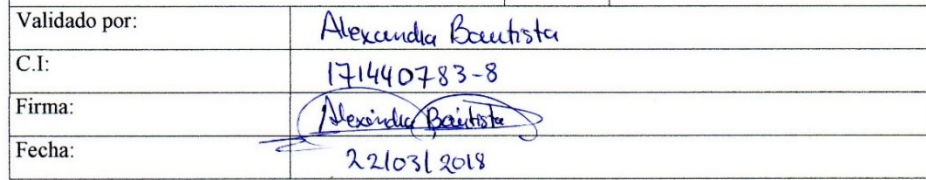 Validado por: Alexandra Bautista
C.I: 171440783-8
Firma: Alexandra Bautista
Fecha: 22/03/2018